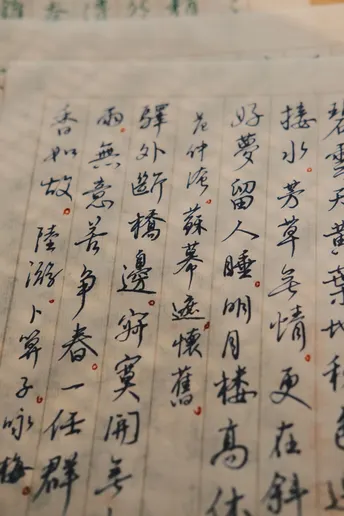 碧雲天黃葉地秋色連
接水芳草無情更在斜
好夢留人睡明月樓高休
范仲淹蘇幕遮懷舊
驛外斷橋邊寂寞開無
雨無意苦爭春一任群
香如故陸游卜算子詠梅